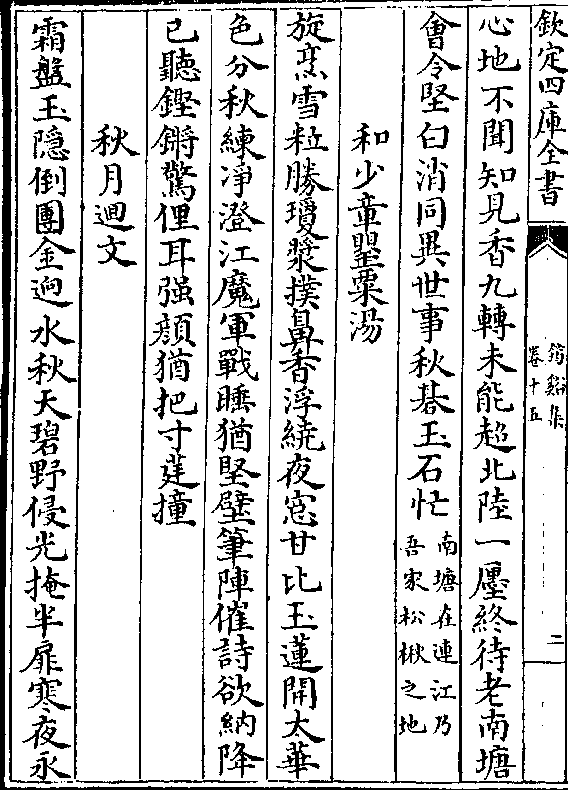 欽定四庫全書
筠谿集
卷十五
二
心地不聞知見香九轉未能超北陸一廛終待老南塘
會令堅白消同異世事秋碁玉石忙
南塘在連江乃
吾家松楸之地
和少童罌粟湯
旋烹雪粒勝瓊漿撲鼻香浮繞夜窓甘比玉蓮開太華
色分秋練凈澄江魔軍戰睡猶堅壁筆陣催詩欲納降
已聽鏗鏘驚俚耳强顔猶把寸莛撞
秋月迴文
霜盤玉隠倒團金逈水秋天碧野侵光掩半扉寒夜永